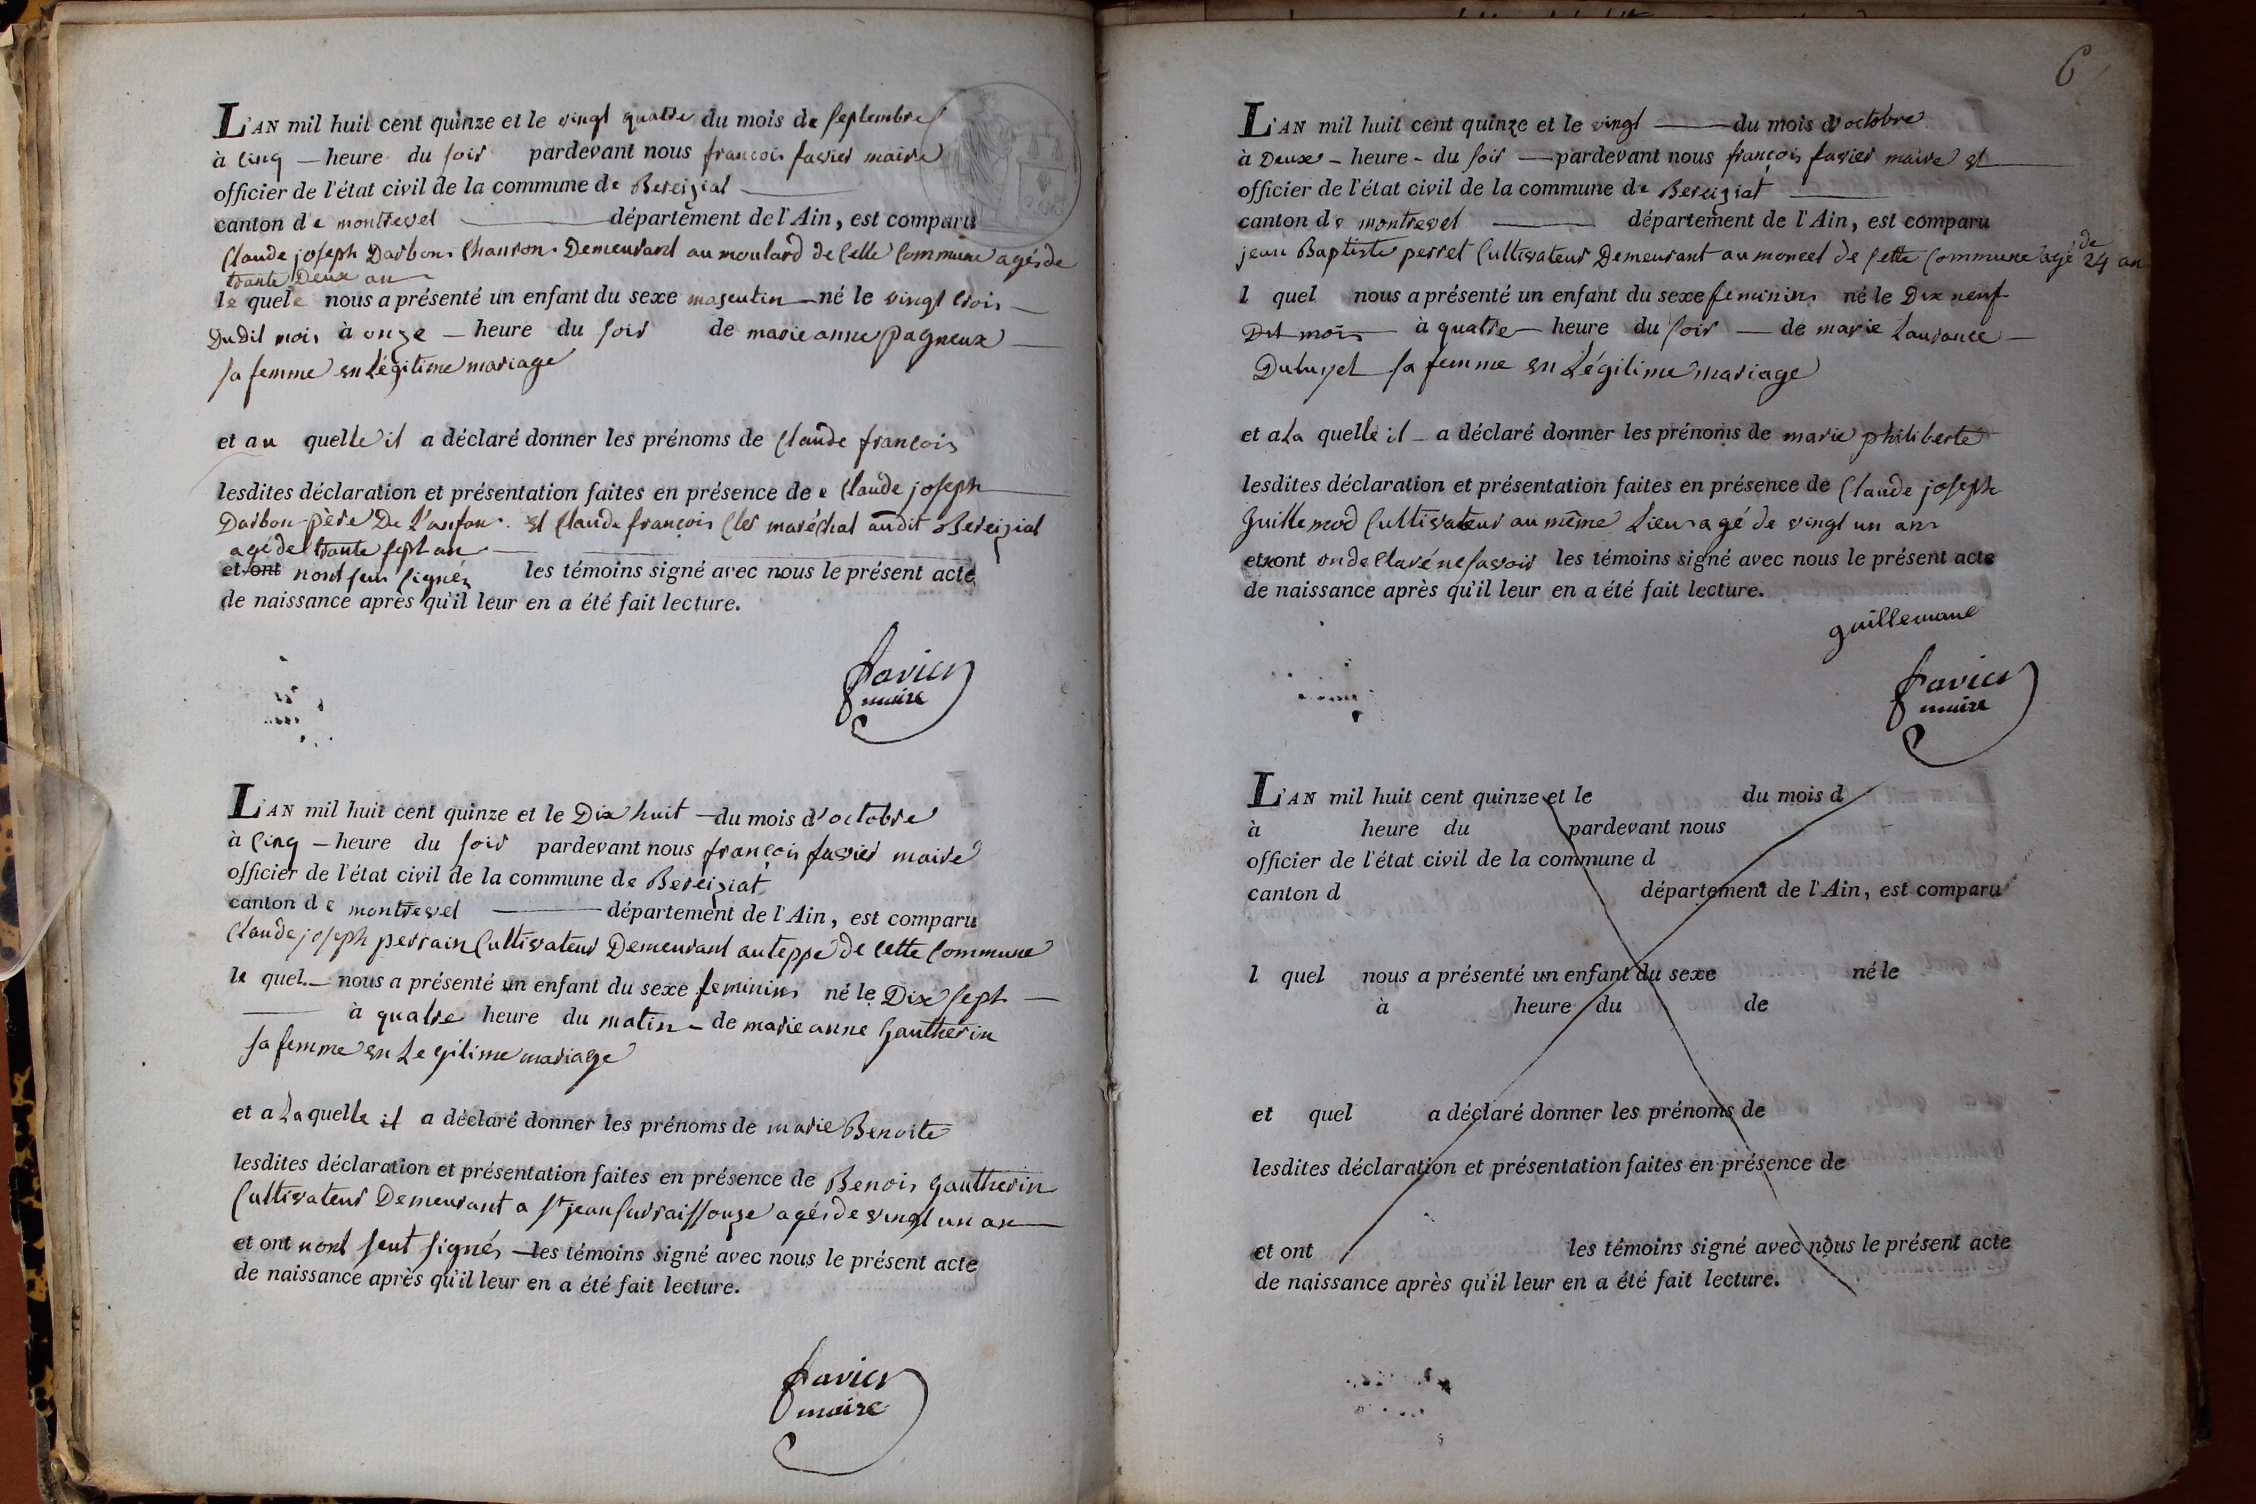 L'AN mil huit cent quinze et le vingt quatre du mois de septembre
à cinq — heure du soir pardevant nous francois favier maire
officier de l'état civil de la commune de Bereiziat
canton de montrevel département de l'Ain, est comparu
Claude joseph Darbon Charron Demeurant au moulard de cette Commune agés de
trante Deux an
le quele nous a présenté un enfant du sexe masculin né le vingt trois
Dudit mois à onze — heure du soir de marie anne pagneux
sa femme en Légitime mariage
et au quelle il a déclaré donner les prénoms de Claude françois
lesdites déclaration et présentation faites en présence de Claude joseph
Darbon père De L'anfan et Claude françois Cler maréchal audit Bereiziat
agé de trante sept an
et ont nont seu signés les témoins signé avec nous le présent acte
de naissance après qu'il leur en a été fait lecture.
favier
maire
L'AN mil huit cent quinze et le Dix huit du mois d'octobre
à Cinq — heure du soir pardevant nous françois favier maire
officier de l'état civil de la commune de Bereiziat
canton de montrevel département de l'Ain, est comparu
Claude joseph perrain Cultivateur Demeurant au teppe de cette Commune
le quel nous a présenté un enfant du sexe feminins né le Dix sept
à quatre heure du matin de marie anne Gautherin
sa femme en Legitime mariage
et a La quelle il a déclaré donner les prénoms de marie Benoite
lesdites déclaration et présentation faites en présence de Benois Gautherin
Cultivateur Demeurant a St jean sur raissouze agés de vingt un an
et ont nont seut signés les témoins signé avec nous le présent acte
de naissance après qu'il leur en a été fait lecture.
favier
maire
6
L'AN mil huit cent quinze et le vingt du mois d'octobre
à Deux — heure - du soir pardevant nous françois favier maire et
officier de l'état civil de la commune de Bereiziat
canton de montrevel département de l'Ain, est comparu
jean Baptiste perret Cultivateur Demeurant au moncel de cette Commune agé de 24 an
l quel nous a présenté un enfant du sexe feminins né le Dix neuf
Dit mois à quatre heure du soir de marie Laurance
Dubuyet sa femme en Légitime mariage
et a La quelle il a déclaré donner les prénoms de marie philiberte
lesdites déclaration et présentation faites en présence de Claude joseph
Guillemod Cultivateur au même Lieu agé de vingt un ans
et ont on declaré ne savoir les témoins signé avec nous le présent acte
de naissance après qu'il leur en a été fait lecture.
guillemane
favier
maire
L'AN mil huit cent quinze et le du mois d
à heure du pardevant nous
officier de l'état civil de la commune d
canton d département de l'Ain, est comparu
l quel nous a présenté un enfant du sexe né le
à heure du de
et quel a déclaré donner les prénoms de
lesdites déclaration et présentation faites en présence de
et ont les témoins signé avec nous le présent acte
de naissance après qu'il leur en a été fait lecture.